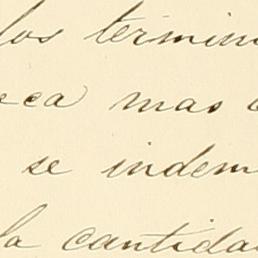 los termin
eca mas
se indem
la cantida